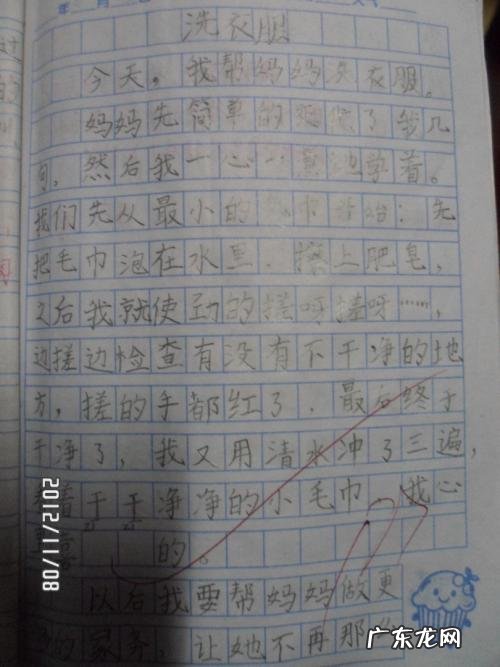 洗衣服
今天,我帮妈妈洗衣服。
妈妈先简单的教了我几
句,然后我一心一意地学着。
我们先从最小的毛巾开始:先
把毛巾泡在水里,擦上肥皂,
之后我就使劲的搓呀搓呀……,
边搓边检查有没有不干净的地
方,搓的手都红了,最后终于
干净了,我又用清水冲了三遍,
看着干干净净的小毛巾,我心
的。
以后我要帮妈妈做更
家务,让她不再那
2012/11/08
广东龙网